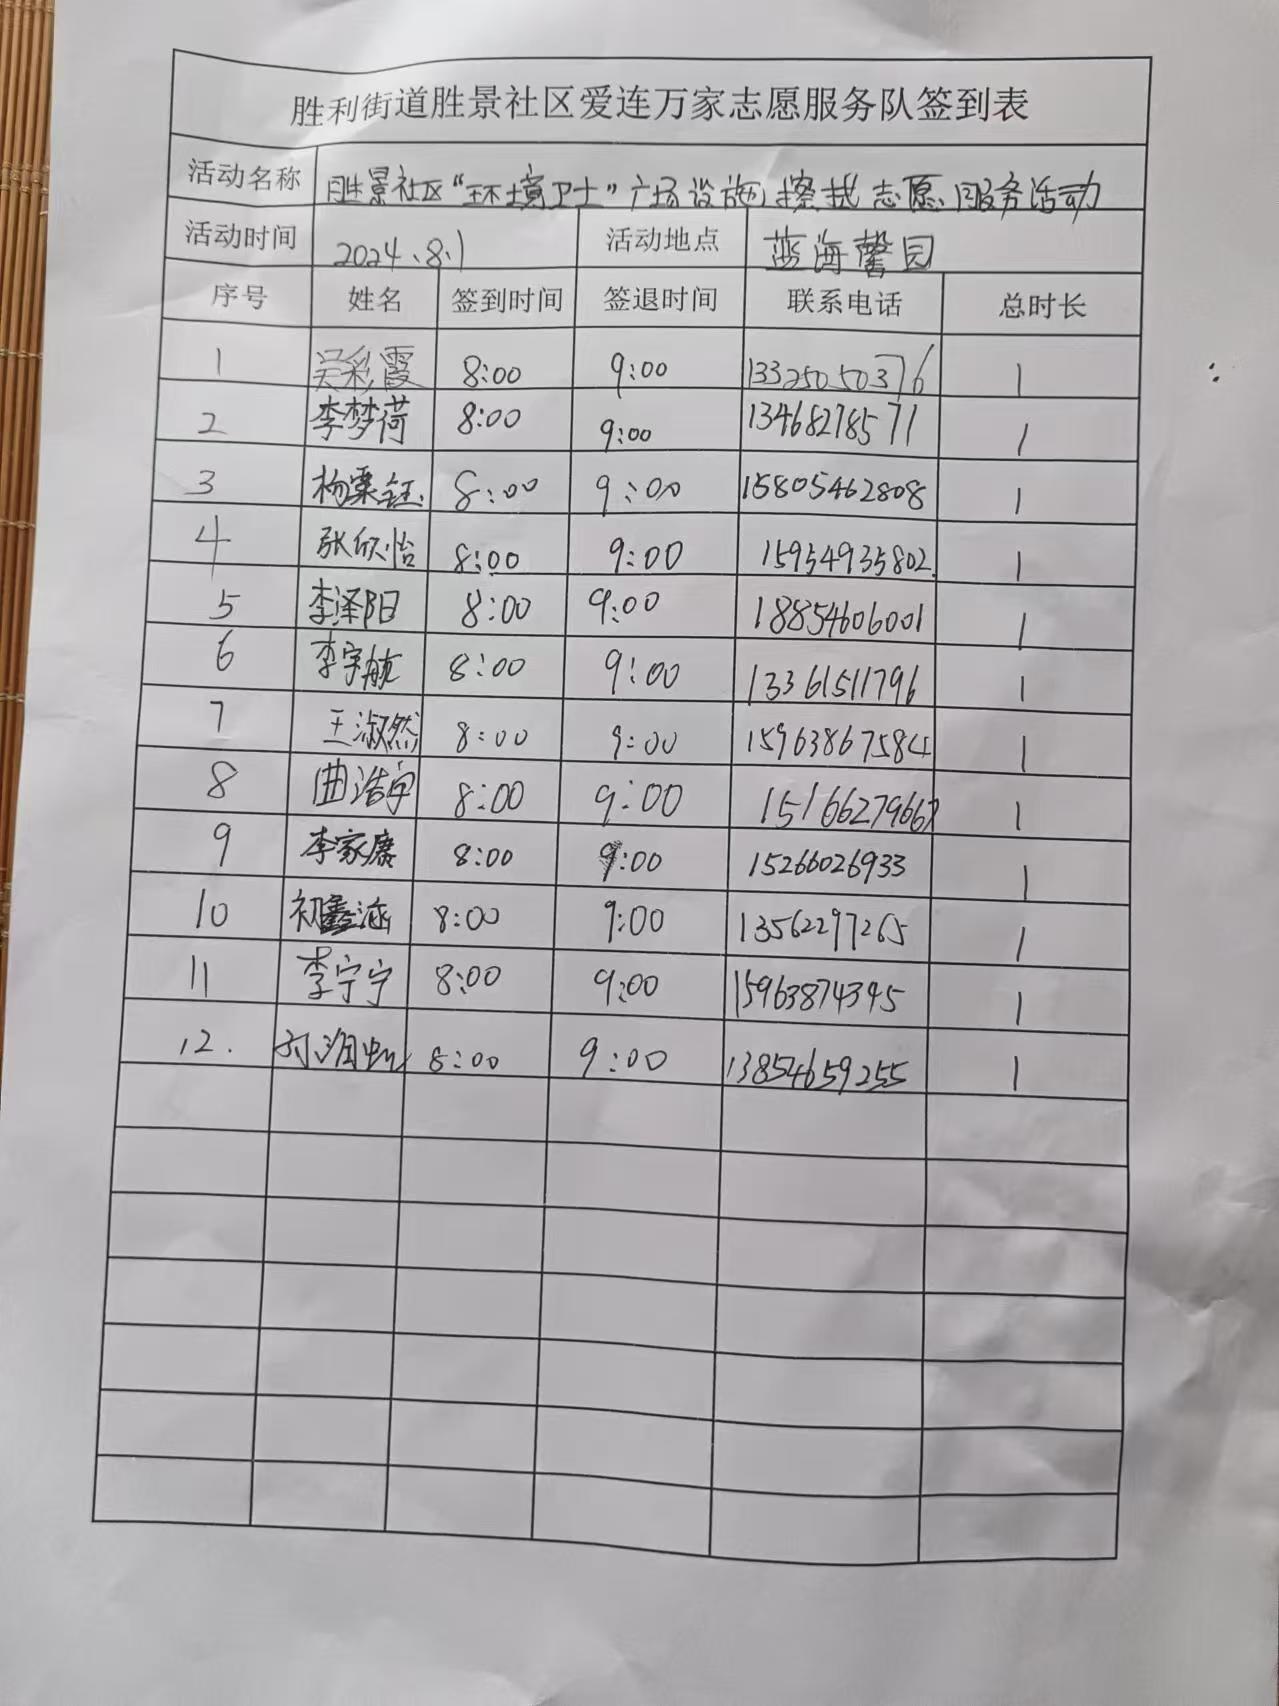 胜利街道胜景社区爱连万家志愿服务队签到表
活动名称 胜景社区“环境卫士”广场设施擦拭志愿服务活动
活动时间 2024.8.1 活动地点 蓝海馨园
序号 姓名 签到时间 签退时间 联系电话 总时长
1 吴彩霞 8:00 9:00 13325050376 1
2 李梦荷 8:00 9:00 13468278571 1
3 杨栗钰 8:00 9:00 15805462808 1
4 张欣怡 8:00 9:00 15954935802. 1
5 李泽阳 8:00 9:00 18854606001 1
6 李宇航 8:00 9:00 13361511796 1
7 王淑然 8:00 9:00 15963867584 1
8 曲浩宇 8:00 9:00 1516627966 1
9 李家康 8:00 9:00 15266026933 1
10 初鑫涵 8:00 9:00 13562297265 1
11 李宁宁 8:00 9:00 15963874395 1
12. 8:00 9:00 13854659255 1